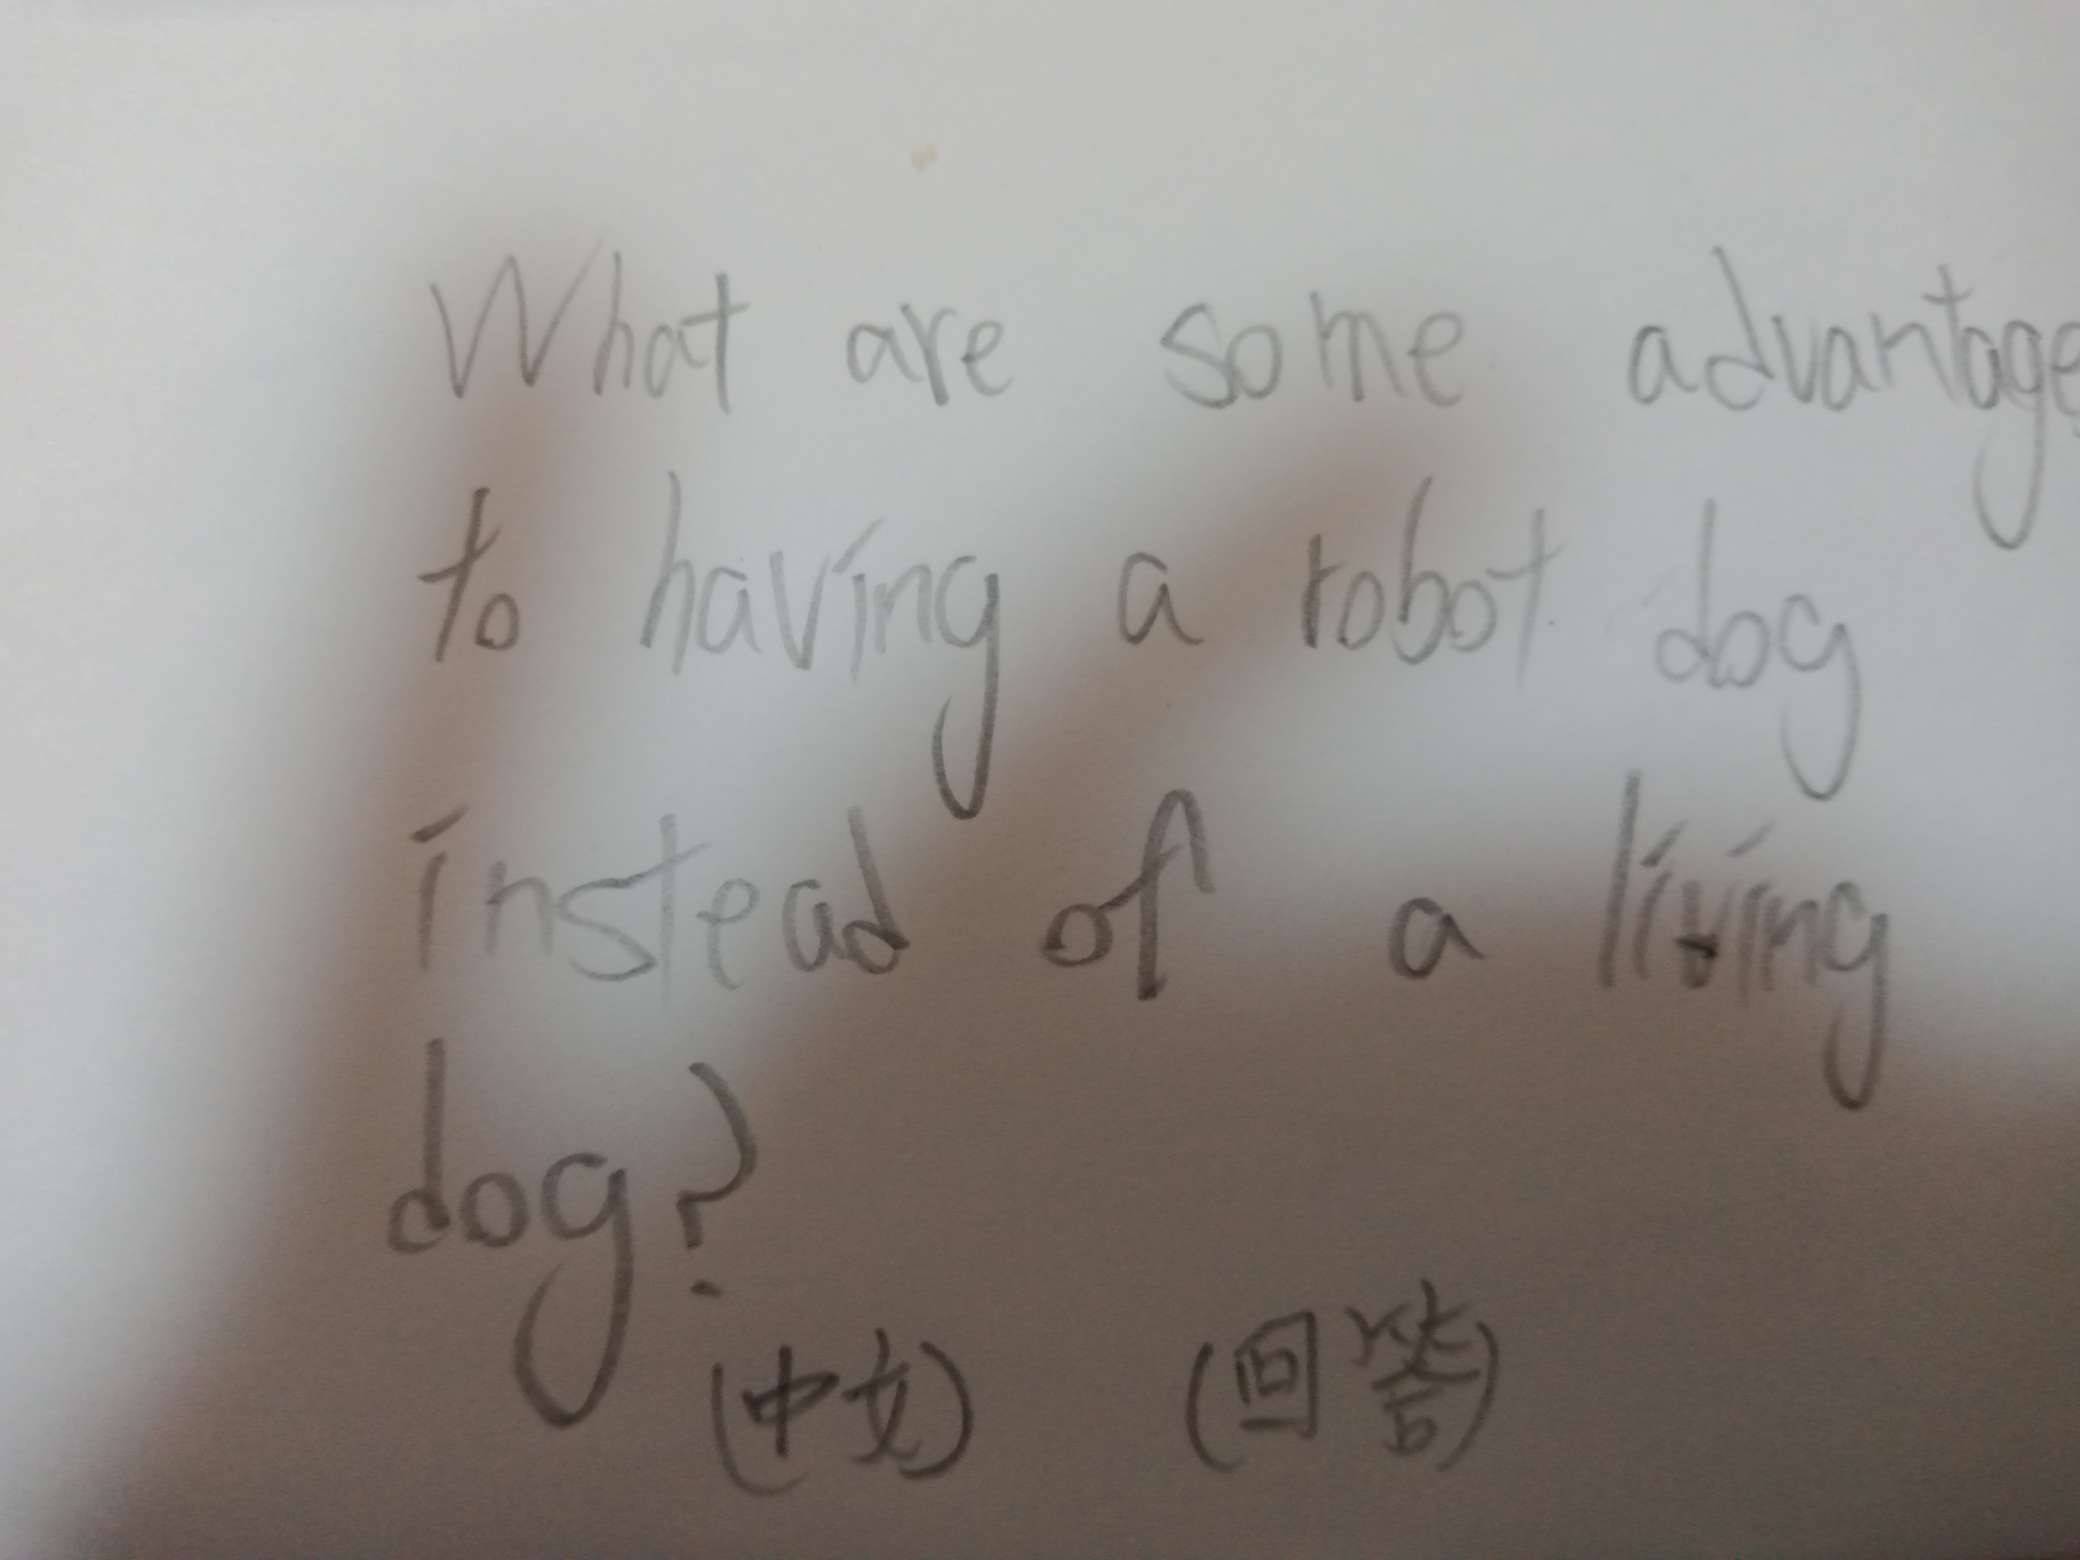 What are some advantage
to having a robot dog
instead of a living
dog?
(中文) (回答)